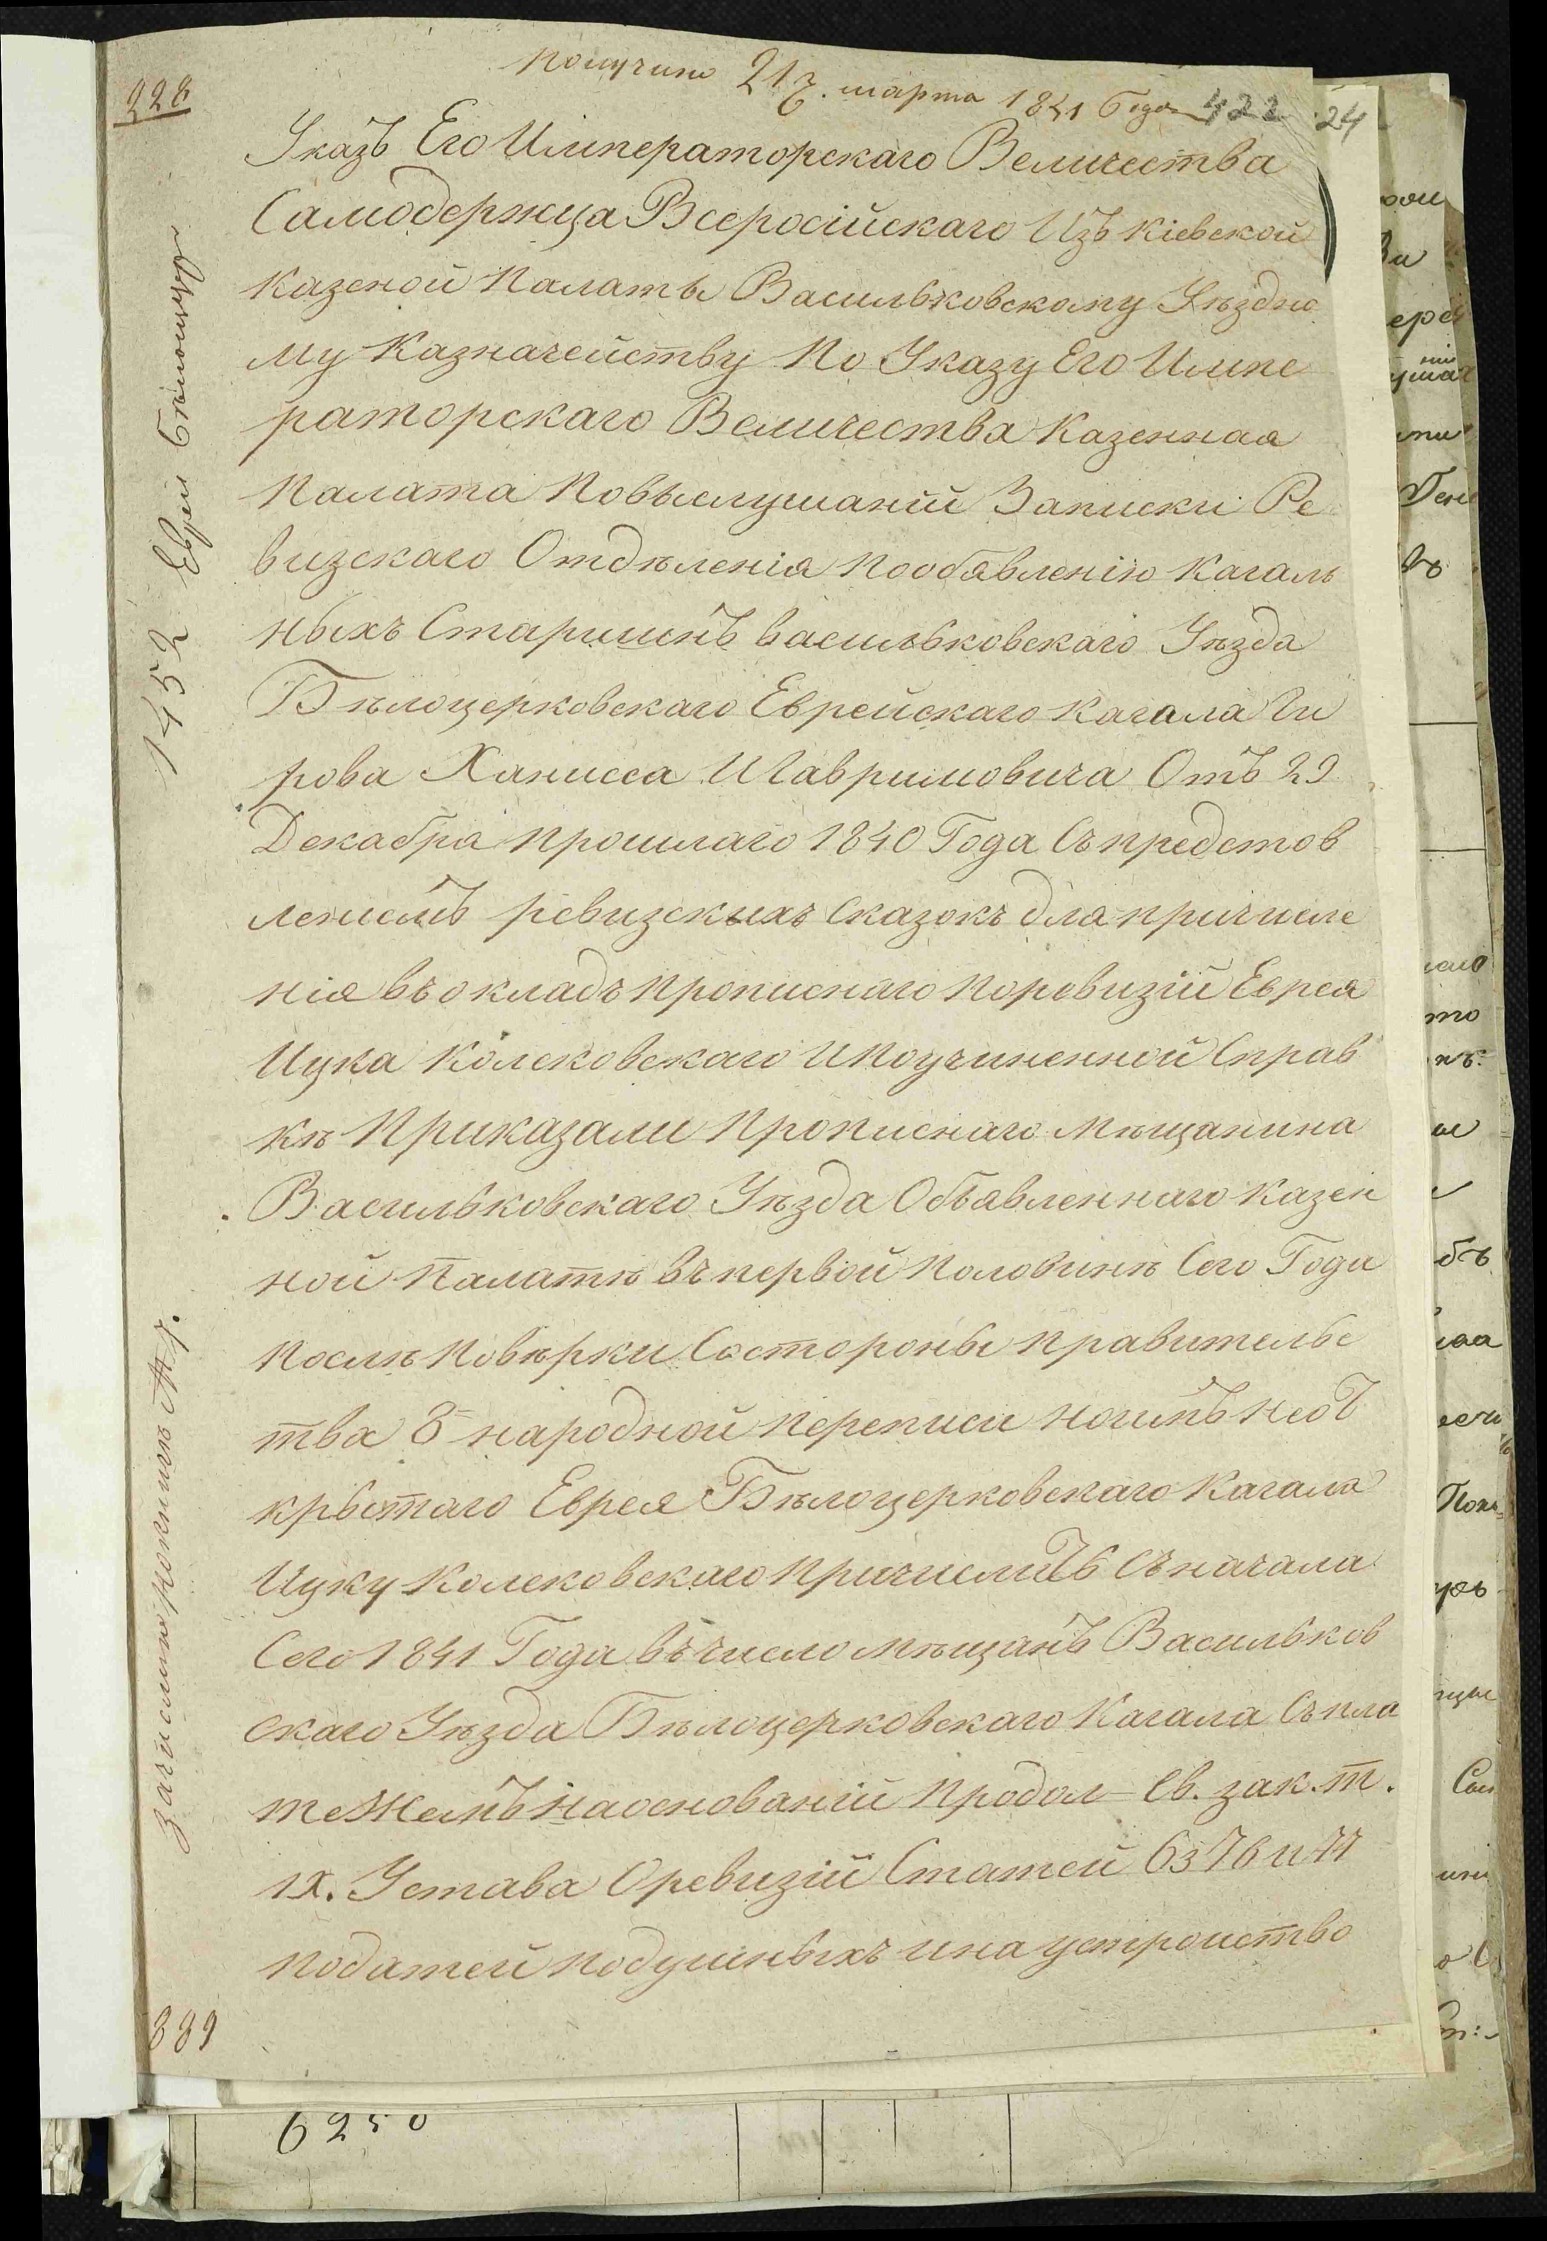 228
получино 21 марта 1841 года 422 24
Указъ Его Императорскаго Величества
Самодержца Всеросійскаго Изъ кіевской
казеной Палаты Васильковскому Уѣздно
му Казначейству По Указу Его Импе
раторскаго Величества Казенная
Палата Повыслушаніи Записки Ре
визскаго Отдѣленія пообявленію кагаль
ныхъ Старшинъ васильковскаго Уѣзда
Бѣлоцерковскаго Еврейскаго кагала Ги
рова Хаписса И Гавримовича Отъ 29
Декабра прошлаго 1840 Года Съ предстов
лениемъ ревизскихъ Сказокъ для причисле
нія въ окладъ прописнаго поревизіи Еврея
Ицка Колековскаго ипоучиненной Справ
кѣ Приказали Прописнаго мѣщанина
Васильковскаго Уѣзда Объявленнаго казен
ной Палатѣ въ первой половинѣ Сего Года
послѣ повѣрки Состороны правительс
тва 8 народной переписи ноимъ необ
крытаго Еврея Бѣлоцерковскаго Кагала
Ицку колековскаго Причислить Съ начала
Сего 1841 Года въ число мѣщанъ Васильков
скаго Уѣзда Бѣлоцерковскаго Кагала Съ пла
тежемъ наоснованіи Продол- Св. зак. т.
IX. Устава Оревизіи Статей 63 76 и 77
податей подушныхъ ина устроиство
1452 Еврей
зачислино
889
6250